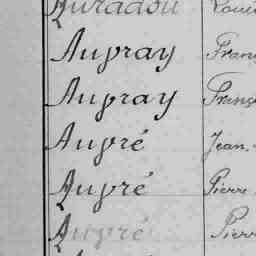 Auradou Louis
Aupray Franç
Aupray Franç
Aupré Jean.
Aupré Pierre
Aupré Pierr